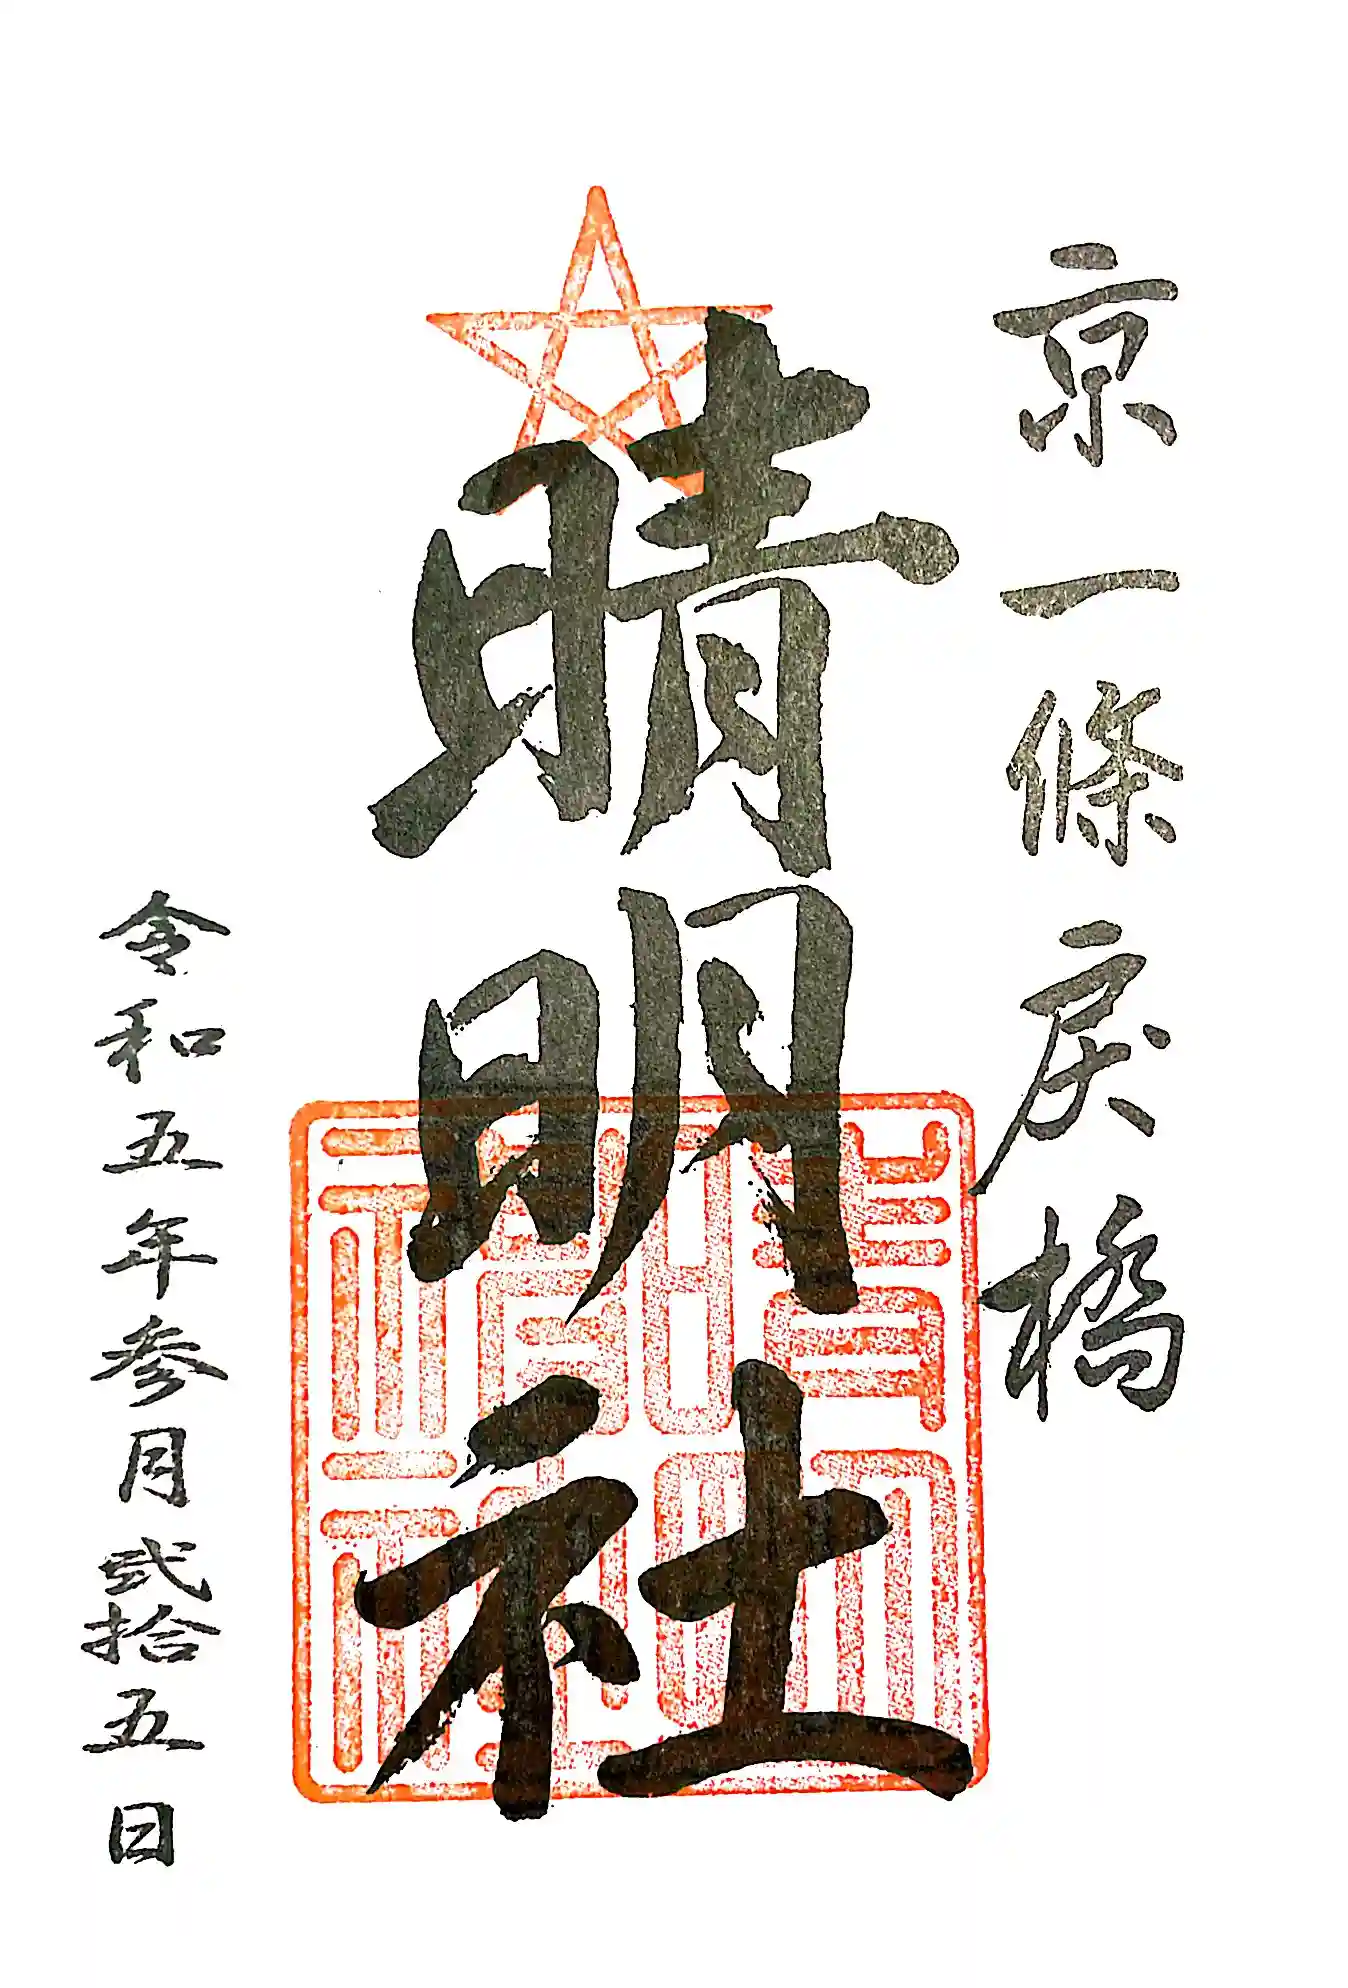 京一條戻橋
晴明社
令和五年参月弐拾五日